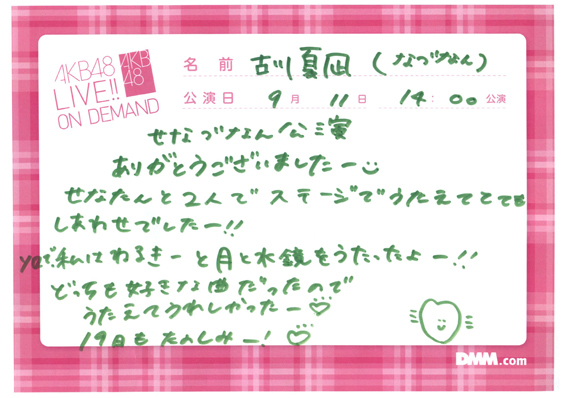 AKB48
LIVE!!
ON DEMAND
AKB
48
名前 古川夏凪 (なづなょん)
公演日 9月 11日 14:00 公演
せなづなょん公演
ありがとうございましたー
せなたんと2人でステージでうたえてとても
しあわせでしたー!!
ya”で、私はわるきーと月と水鏡をうたったよー!!
どっちも好きな曲だったので
うたえてうれしかったー♡
19日もたのしみー!♡
DMM.com